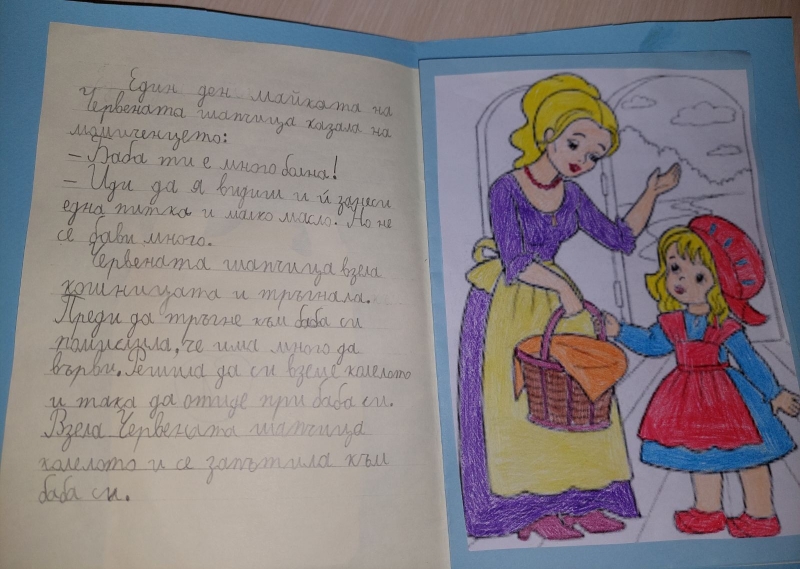 Един ден майката на
Червената шапчица казала на
момиченцето:
– Баба ти е много болна!
– Иди да я видиш и ѝ занеси
една питка и малко масло. Но не
се бави много.
Червената шапчица взела
кошницата и тръгнала.
Преди да тръгне към баба си
помислила, че има много да
върви. Решила да си вземе колелото
и така да отиде при баба си.
Взела Червената шапчица
колелото и се запътила към
баба си.